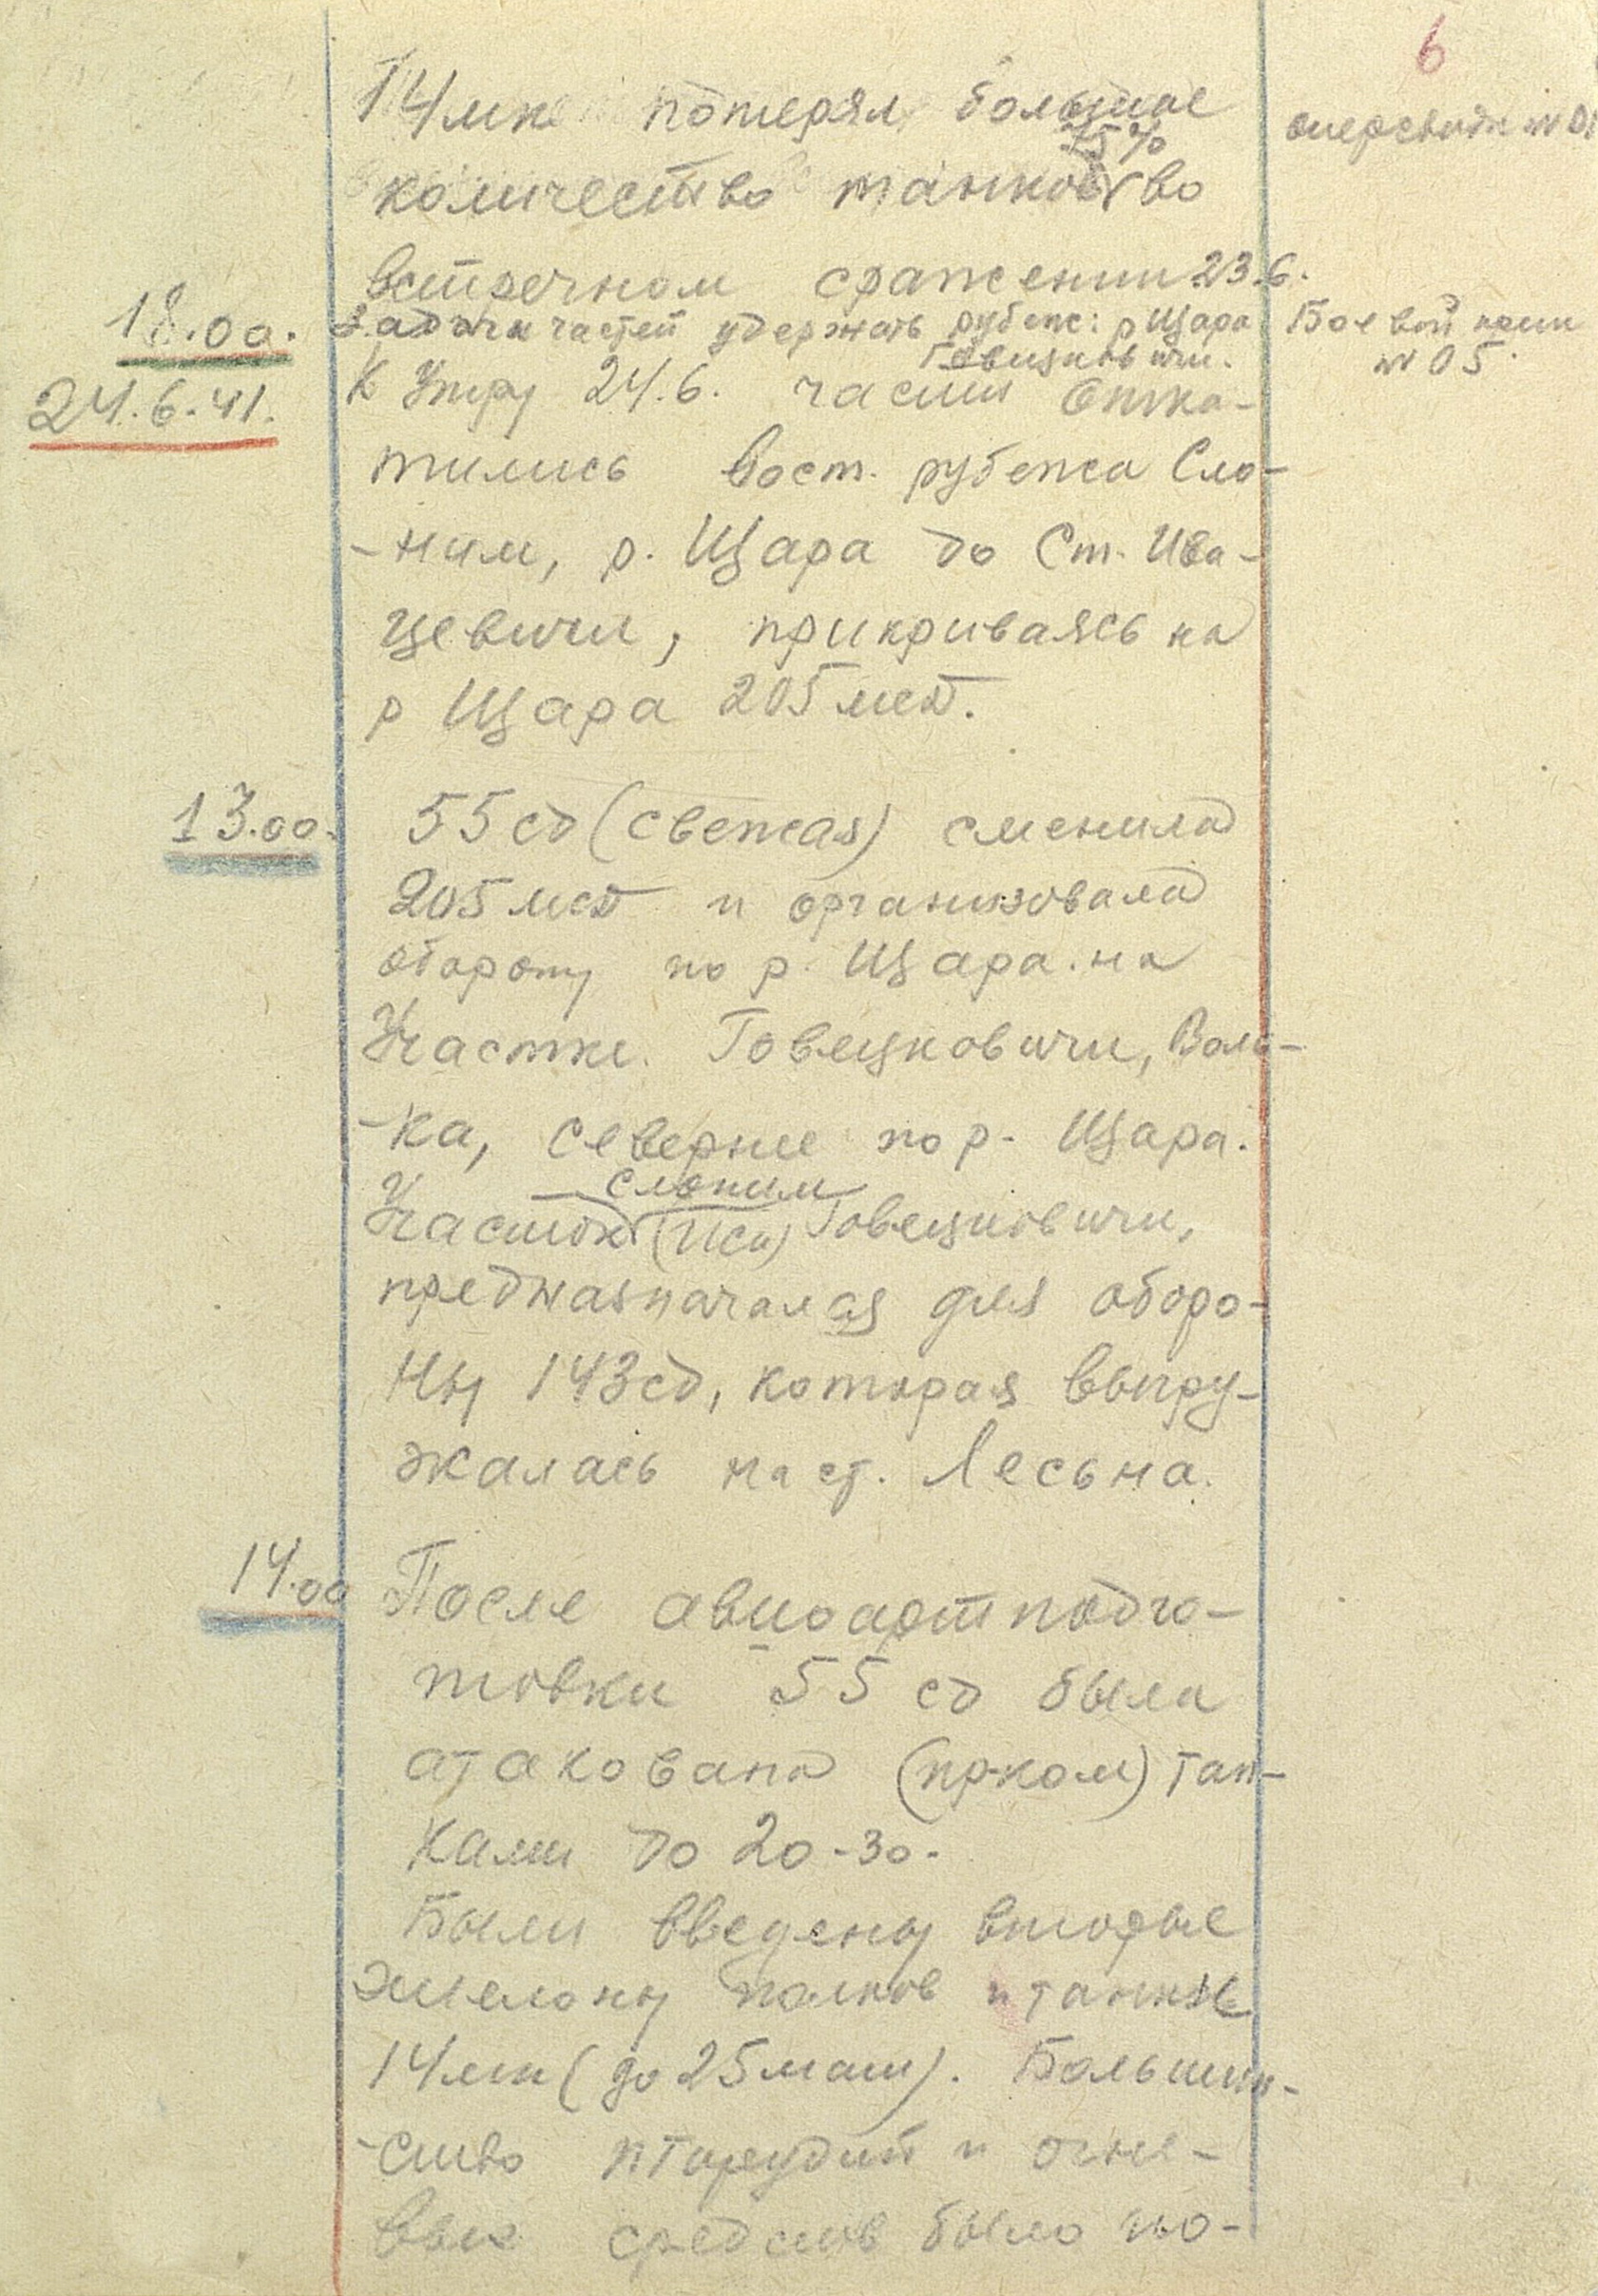 6
14 мк потерял большое
оперсводк № 01
75%
количество танков во
встречном сражении 23.6.
18.00.
Задачи частей удержать рубеж: р Щара
Боевой прик
Говецковичи.
№ 05.
24.6.41.
К Утру 24.6. части Отка-
тились Вост. рубежа Сло-
-ним, р. Щара до Ст. Ива-
цевичи, прикриваясь на
р Щара 205 мсд.
13.00.
55 сд (свежая) сменила
205 мсд и организовала
оборону по р. Щара на
Участке. Говецковичи, Воль-
-ка, севернее по р. Щара.
Слоним
Участок (Иск) Говецковичи,
предназначалась для оборо-
ны 143 сд, которая выгру-
жалась на ст. Лесьна.
14.00
После авиоартподго-
товки 55 сд была
атакована тан-
ками до 20-30.
Были введены вторые
эшелоны полков и танки
14 мк (до 25 маш). Большин-
-ство пторудий и огне-
вых средств было по-